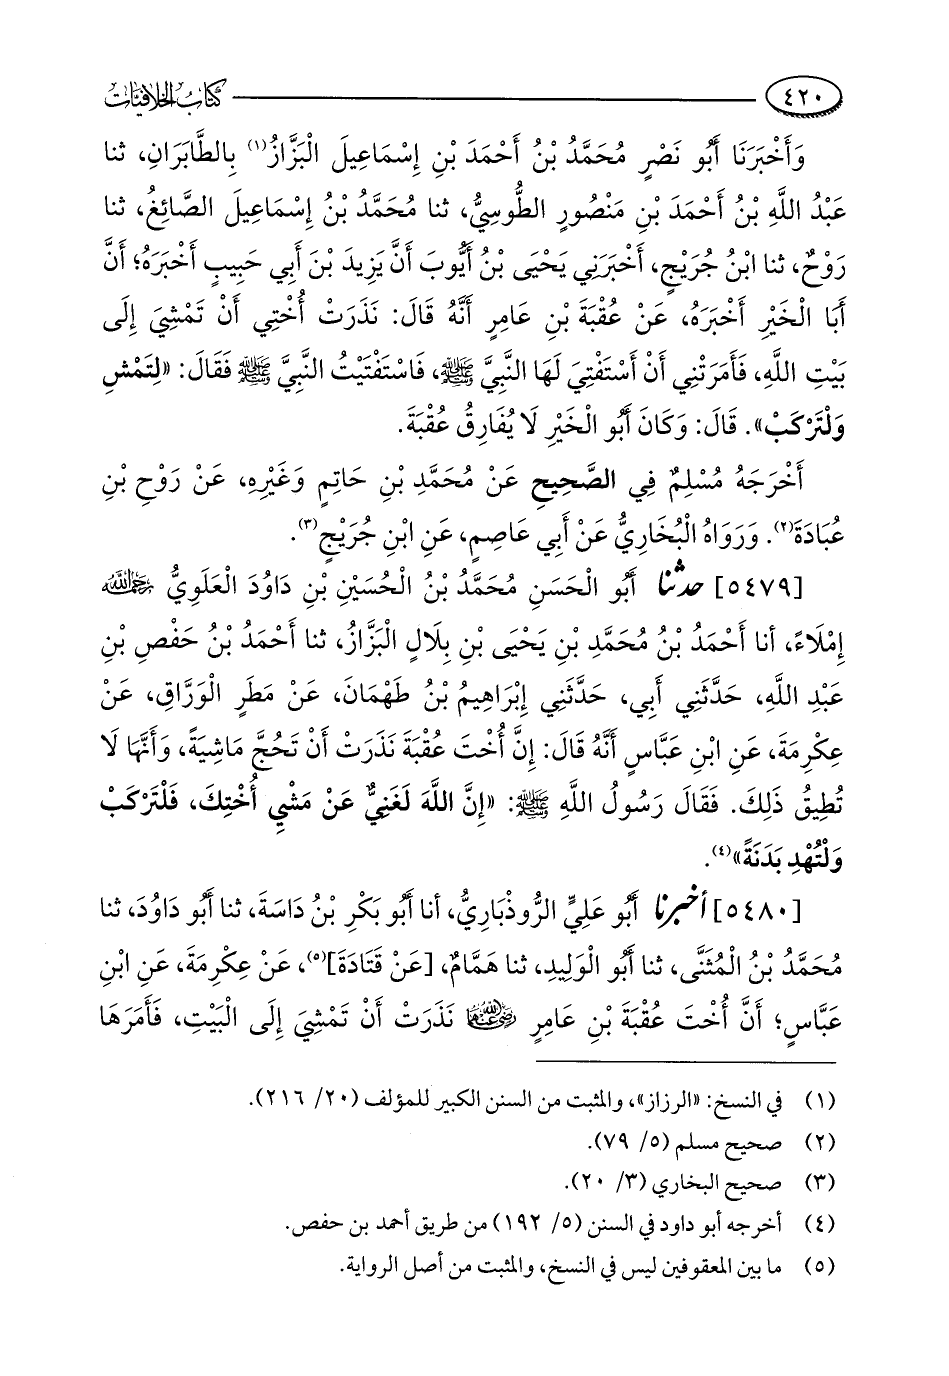 ٤٢٠ كتاب الخلافيات
وَأَخْبَرَنَا أَبُو نَصْرٍ مُحَمَّدُ بْنُ أَحْمَدَ بْنِ إِسْمَاعِيلَ الْبَزَّازُ(١) بِالطَّابَرَانِ، ثنا
عَبْدُ اللَّهِ بْنُ أَحْمَدَ بْنِ مَنْصُورٍ الطُّوسِيُّ، ثنا مُحَمَّدُ بْنُ إِسْمَاعِيلَ الصَّائِغُ، ثنا
رَوْحٌ، ثنا ابْنُ جُرَيْجٍ، أَخْبَرَنِي يَحْيَى بْنُ أَيُّوبَ أَنَّ يَزِيدَ بْنَ أَبِي حَبِيبٍ أَخْبَرَهُ؛ أَنَّ
أَبَا الْخَيْرِ أَخْبَرَهُ، عَنْ عُقْبَةَ بْنِ عَامِرٍ أَنَّهُ قَالَ: نَذَرَتْ أُخْتِي أَنْ تَمْشِيَ إِلَى
بَيْتِ اللَّهِ، فَأَمَرَتْنِي أَنْ أَسْتَفْتِيَ لَهَا النَّبِيَّ ﷺ، فَاسْتَفْتَيْتُ النَّبِيَّ ﷺ فَقَالَ: «لِتَمْشِ
وَلْتَرْكَبْ». قَالَ: وَكَانَ أَبُو الْخَيْرِ لَا يُفَارِقُ عُقْبَةَ.
أَخْرَجَهُ مُسْلِمٌ فِي الصَّحِيحِ عَنْ مُحَمَّدِ بْنِ حَاتِمٍ وَغَيْرِهِ، عَنْ رَوْحِ بْنِ
عُبَادَةَ(٢). وَرَوَاهُ الْبُخَارِيُّ عَنْ أَبِي عَاصِمٍ، عَنِ ابْنِ جُرَيْجٍ(٣).
[٥٤٧٩] حدثنا أَبُو الْحَسَنِ مُحَمَّدُ بْنُ الْحُسَيْنِ بْنِ دَاوُدَ الْعَلَوِيُّ رحمه الله
إِمْلَاءً، أنا أَحْمَدُ بْنُ مُحَمَّدِ بْنِ يَحْيَى بْنِ بِلَالٍ الْبَزَّازُ، ثنا أَحْمَدُ بْنُ حَفْصِ بْنِ
عَبْدِ اللَّهِ، حَدَّثَنِي أَبِي، حَدَّثَنِي إِبْرَاهِيمُ بْنُ طَهْمَانَ، عَنْ مَطَرٍ الْوَرَّاقِ، عَنْ
عِكْرِمَةَ، عَنِ ابْنِ عَبَّاسٍ أَنَّهُ قَالَ: إِنَّ أُخْتَ عُقْبَةَ نَذَرَتْ أَنْ تَحُجَّ مَاشِيَةً، وَأَنَّهَا لَا
تُطِيقُ ذَلِكَ. فَقَالَ رَسُولُ اللَّهِ ﷺ: «إِنَّ اللَّهَ لَغَنِيٌّ عَنْ مَشْيِ أُخْتِكَ، فَلْتَرْكَبْ
وَلْتُهْدِ بَدَنَةً»(٤).
[٥٤٨٠] أخبرنا أَبُو عَلِيٍّ الرُّوذْبَارِيُّ، أنا أَبُو بَكْرِ بْنُ دَاسَةَ، ثنا أَبُو دَاوُدَ، ثنا
مُحَمَّدُ بْنُ الْمُثَنَّى، ثنا أَبُو الْوَلِيدِ، ثنا هَمَّامٌ، [عَنْ قَتَادَةَ](٥)، عَنْ عِكْرِمَةَ، عَنِ ابْنِ
عَبَّاسٍ؛ أَنَّ أُخْتَ عُقْبَةَ بْنِ عَامِرٍ رضي الله عنهما نَذَرَتْ أَنْ تَمْشِيَ إِلَى الْبَيْتِ، فَأَمَرَهَا
(١) في النسخ: «الرزاز»، والمثبت من السنن الكبير للمؤلف (٢٠/ ٢١٦).
(٢) صحيح مسلم (٥/ ٧٩).
(٣) صحيح البخاري (٣/ ٢٠).
(٤) أخرجه أبو داود في السنن (٥/ ١٩٢) من طريق أحمد بن حفص.
(٥) ما بين المعقوفين ليس في النسخ، والمثبت من أصل الرواية.